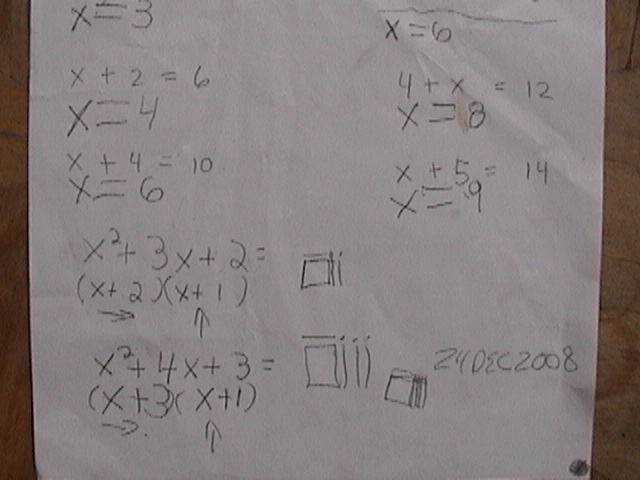 x = 3
x = 6
x + 2 = 6
x = 4
4 + x = 12
x = 8
x + 4 = 10
x = 6
x + 5 = 14
x = 9
x² + 3x + 2 =
(x + 2)(x + 1)
x² + 4x + 3 =
(x + 3)(x + 1)
24DEC2008